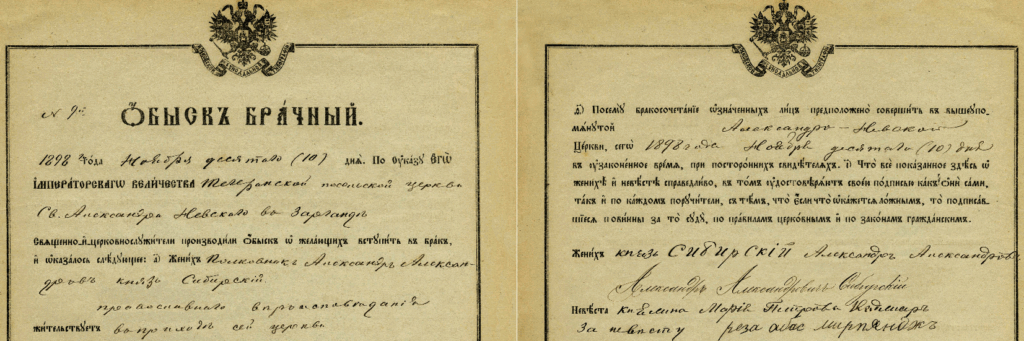 N 9й
ОБЫСКЪ БРАЧНЫЙ.
1898 Года Ноября десятаго (10) дня. По Ѹказу ЕГѠ
ІМПЕРАТОРСКАГѠ ВЕЛИЧЕСТВА Тегеранской посольской церкви
Св. Александра Невскаго въ Заргандѣ
Священно-й-церковнослужители производили Обыскъ ѡ желающихъ вступить въ бракъ,
й ѡказалось слѣдующее: а҃) Женихъ Полковникъ Александръ Алексан-
дровъ князь Сибирскій
православнаго вѣроисповѣданія
жительствуетъ въ приходѣ сей церкви
Посему бракосочетаніе ѡзначенныхъ лицъ предположено совершить въ вышеупо-
мянутой Александро-Невской
Церкви, сегѡ 1898 года Ноября десятаго (10) дня
въ узаконенное время, при постороннихъ свидѣтеляхъ. Что всё показанное здѣсь ѡ
женихѣ й невѣстѣ справедливо, въ томъ удостовѣряютъ своею подписью какъ они сами,
такъ й по каждомъ поручители, съ тѣмъ, что если что ѡкажется ложнымъ, то подписав-
шіеся повинны за то суду, по правиламъ церковнымъ й по законамъ гражданскимъ.
Женихъ князь СИБИРСКІЙ Александръ Александровъ
Александръ Александровичъ Сибирскій
Невѣста Марія Петрова
За невѣсту реза абас мирпянджъ